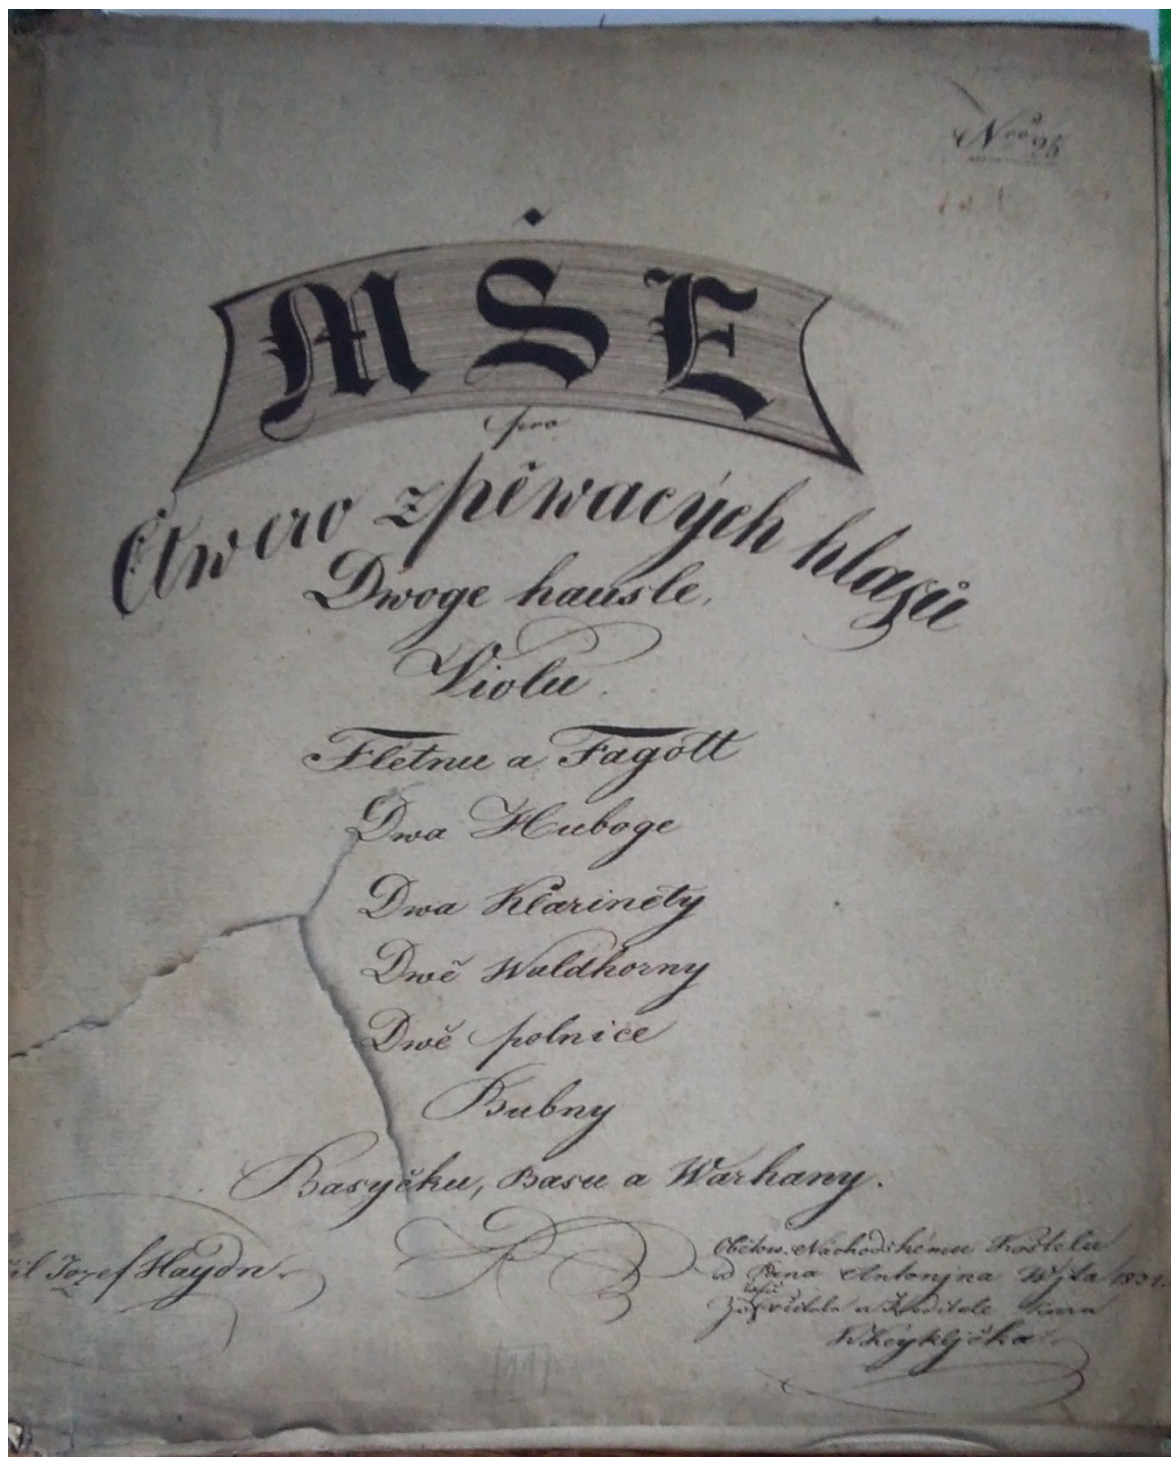 Nro 25
MŠE
pro
Čtwero zpěwacých hlasů
Dwoge hausle,
Violu.
Flétnu a Fagott
Dwa Huboge
Dwa Klarinéty
Dwě Waldhorny
Dwě polnice
Bubny
Basyčku, Basu a Warhany.
il Jozef Haydn.
Obětow. Náchodskému Kostelu
od Pana Antonjna Wjta 1831.
učitele a Ředitele kůru